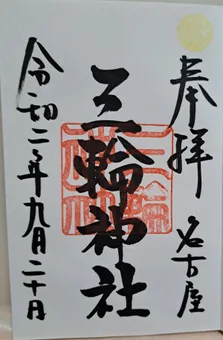 奉拝
名古屋
三輪神社
令和二年九月二十日